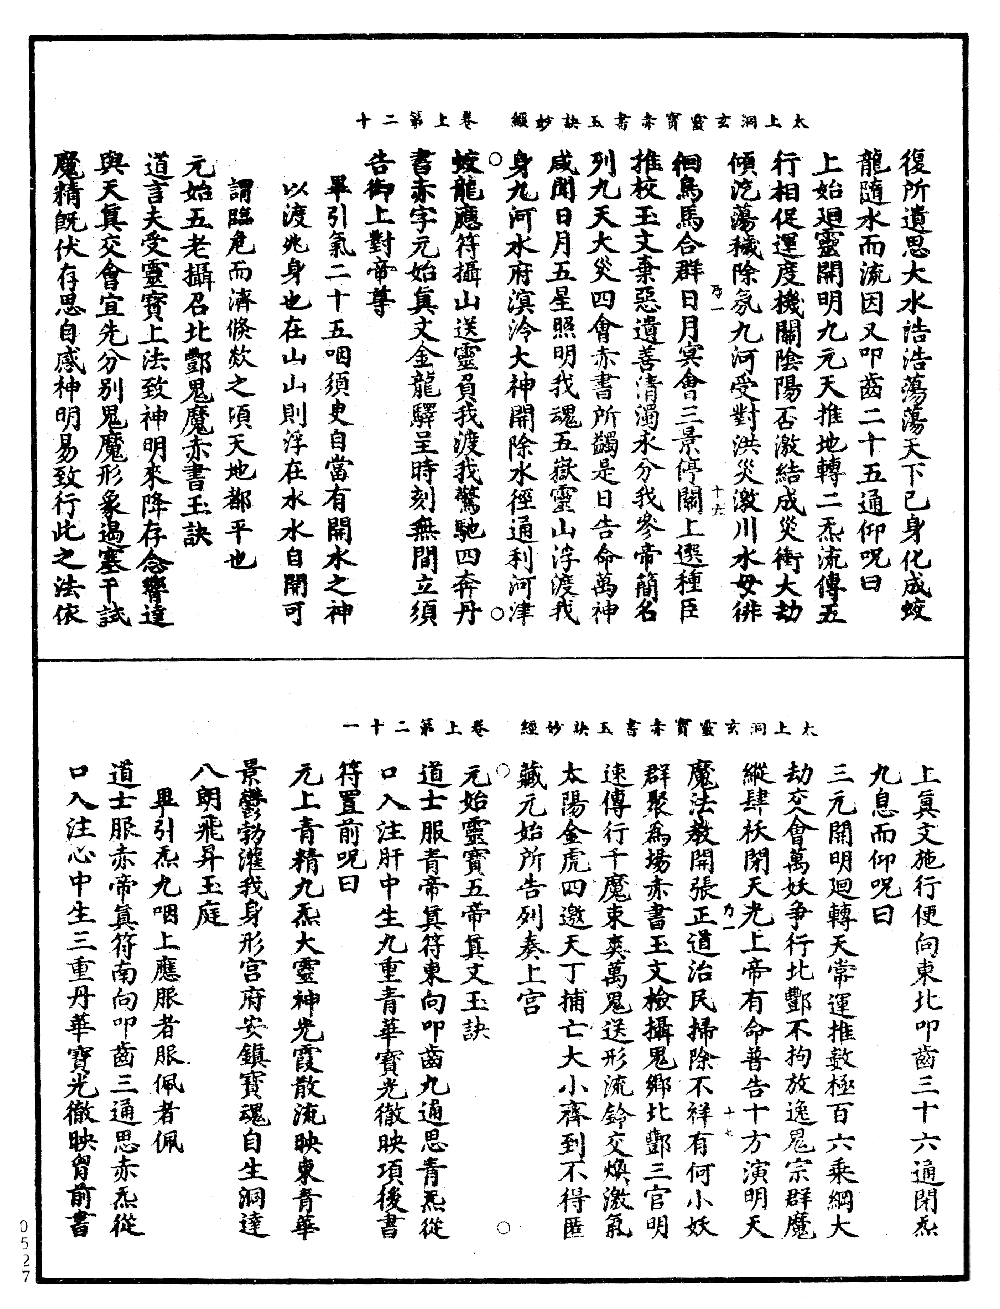 太上洞玄靈寶赤書玉訣妙經　卷上第二十
復所遺思大水浩浩蕩蕩天下已身化成蛟
龍隨水而流因又叩齒二十五通仰呪曰
上始廻靈開明九元天推地轉二炁流傳五
行相促運度機關陰陽否激結成災衝大劫
傾訖蕩穢除氛九河受對洪災激川水母徘
徊鳥馬合群日月冥會三景停關上選種臣
推校玉文棄惡遺善清濁水分我參帝簡名
列九天大災四會赤書所蠲是日告命萬神
咸聞日月五星照明我魂五嶽靈山浮渡我
身九河水府溟泠大神開除水徑通利河津
蛟龍應符攝山送靈負我渡我驚馳四奔丹
書赤字元始真文金龍驛呈時刻無間立須
告御上對帝尊
畢引氣二十五咽須臾自當有開水之神
以渡兆身也在山山則浮在水水自開可
謂臨危而濟倏欻之頃天地都平也
元始五老攝召北酆鬼魔赤書玉訣
道言夫受靈寶上法致神明來降存念響達
與天真交會宜先分別鬼魔形象遏塞干試
魔精既伏存思自感神明易致行此之法依
十六
太上洞玄靈寶赤書玉訣妙經　卷上第二十一
上真文施行便向東北叩齒三十六通閉炁
九息而仰呪曰
三元開明廻轉天常運推數極百六乘綱大
劫交會萬妖爭行北酆不拘放逸鬼宗群魔
縱肆袄閉天光上帝有命普告十方演明天
魔法教開張正道治民掃除不祥有何小妖
群聚為場赤書玉文檢攝鬼鄉北酆三官明
速傳行千魔束爽萬鬼送形流鈴交煥激氣
太陽金虎四邀天丁捕亡大小齊到不得匿
藏元始所告列奏上宮
元始靈寶五帝真文玉訣
道士服青帝真符東向叩齒九通思青炁從
口入注肝中生九重青華寶光徹映項後書
符置前呪曰
元上青精九炁大靈神光霞散流映東青華
景鬱勃灌我身形宮府安鎮寶魂自生洞達
八朗飛昇玉庭
畢引炁九咽上應服者服佩者佩
道士服赤帝真符南向叩齒三通思赤炁從
口入注心中生三重丹華寶光徹映胷前書
十七
0527